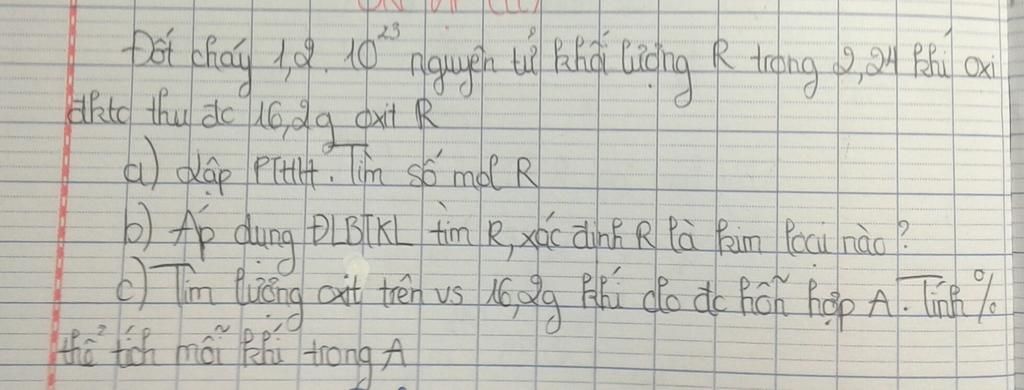 Đốt cháy 1,2. 10²³ nguyên tử khối lượng R trong 2,24 khí oxi
đktc thu đc 16,2g oxit R
a) Lập PTHH. Tìm số mol R
b) Áp dụng ĐLBTKL tìm R, xác định R là kim loại nào?
c) Tìm lượng oxit trên vs 16,2g khí do đc hỗn hợp A. Tính %
thể tích mỗi khí trong A